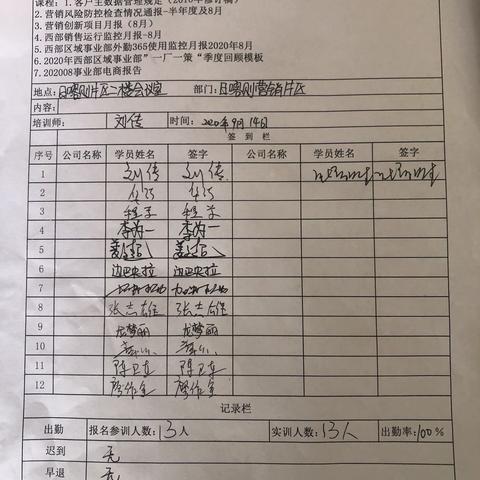 课程：1. 客户主数据管理规定（2018年修订稿）
2. 营销风险防控检查情况通报-半年度及8月
3. 营销创新项目月报（8月）
4. 西部销售运行监控月报-8月
5. 西部区域事业部外勤365使用监控月报2020年8月
6. 2020年西部区域事业部”一厂一策“季度回顾模板
7. 202008事业部电商报告
地点：日喀则片区二楼会议室 部门：日喀则营销片区
内容：
培训师： 刘传 时间： 2020年9月14日
签 到 栏
序号 公司名称 学员姓名 签字 公司名称 学员姓名 签字
1 刘传 刘传
2
3 程学 程学
4 李为一 李为一
5
6 边巴央拉 边巴央拉
7
8 张志雄 张志雄
9 龙梦丽 龙梦丽
10
11 陈卫东 陈卫东
12 廖作金 廖作金
记录栏
出勤 报名参训人数：13人 实训人数：13人 出勤率：100%
迟到 无
早退 无